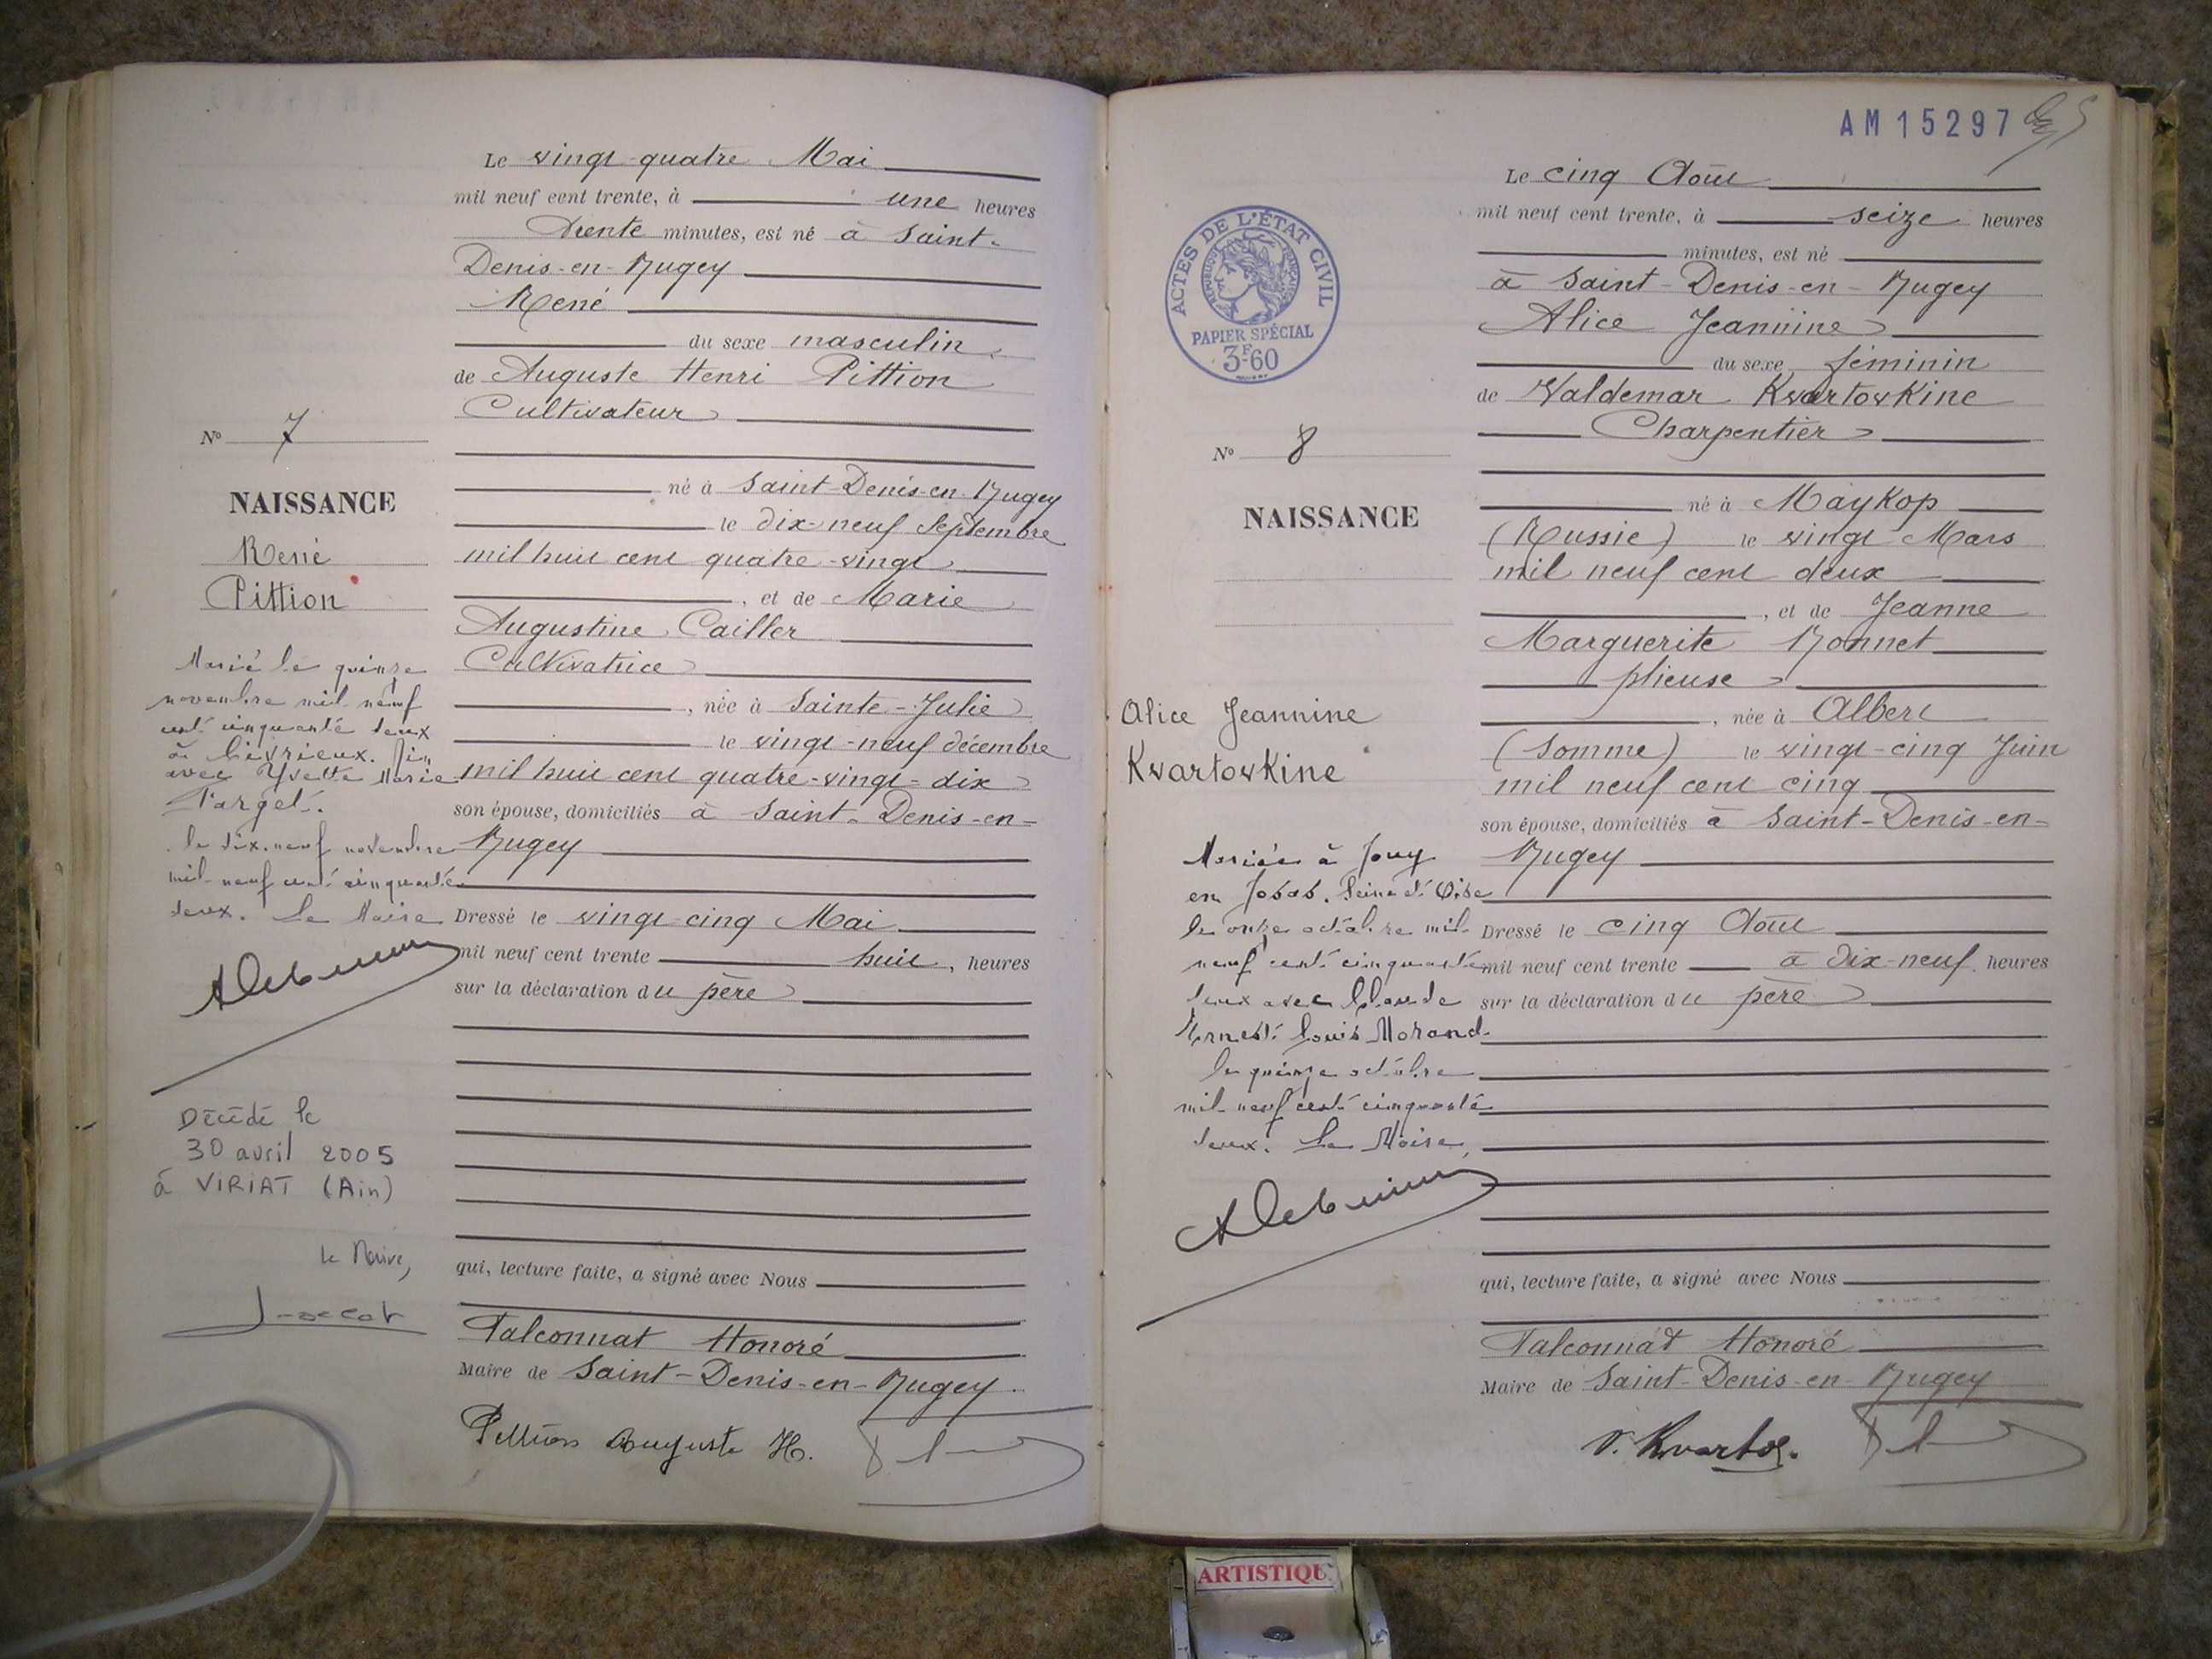 Le vingt-quatre Mai
mil neuf cent trente, à une heures
trente minutes, est né à Saint-
Denis-en-Bugey
René
du sexe masculin
de Auguste Henri Pittion
Cultivateur
né à Saint-Denis-en-Bugey
le dix-neuf Septembre
mil huit cent quatre-vingt
, et de Marie
Augustine Cailler
Cultivatrice
, née à Sainte-Julie
le vingt-neuf décembre
mil huit cent quatre-vingt-dix
son épouse, domiciliés à Saint-Denis-en-
Bugey
Dressé le vingt-cinq Mai
mil neuf cent trente huit, heures
sur la déclaration du père
qui, lecture faite, a signé avec Nous
Falconnat Honoré
Maire de Saint-Denis-en-Bugey.
Pittion Auguste H.
N° 7
NAISSANCE
René
Pittion
Marié le quinze
novembre mil neuf
cent cinquante deux
à Ain
avec Yvette Marie
Target.
le dix-neuf novembre
mil neuf cent cinquante
deux. Le Maire
Décédé le
30 avril 2005
à VIRIAT (Ain)
le Maire,
AM15297
ACTES DE L'ÉTAT CIVIL
RÉPUBLIQUE FRANÇAISE
PAPIER SPÉCIAL
3F60
Le cinq Août
mil neuf cent trente, à seize heures
minutes, est né
à Saint-Denis-en-Bugey
Alice Jeannine
du sexe féminin
de Valdemar Kvartovkine
Charpentier
né à Maykop
(Russie) le vingt Mars
mil neuf cent deux
, et de Jeanne
Marguerite Bonnet
plieuse
, née à Albert
(Somme) le vingt-cinq Juin
mil neuf cent cinq
son épouse, domiciliés à Saint-Denis-en-
Bugey
Dressé le cinq Août
mil neuf cent trente à dix-neuf heures
sur la déclaration du père
qui, lecture faite, a signé avec Nous
Falconnat Honoré
Maire de Saint-Denis-en-Bugey
V. Kvartov.
N° 8
NAISSANCE
Alice Jeannine
Kvartovkine
Mariée à Jouy
en Josas. Seine et Oise
le onze octobre mil
neuf cent cinquante
deux avec Claude
Ernest Louis Morand.
le quinze octobre
mil neuf cent cinquante
deux. Le Maire,
ARTISTIQU